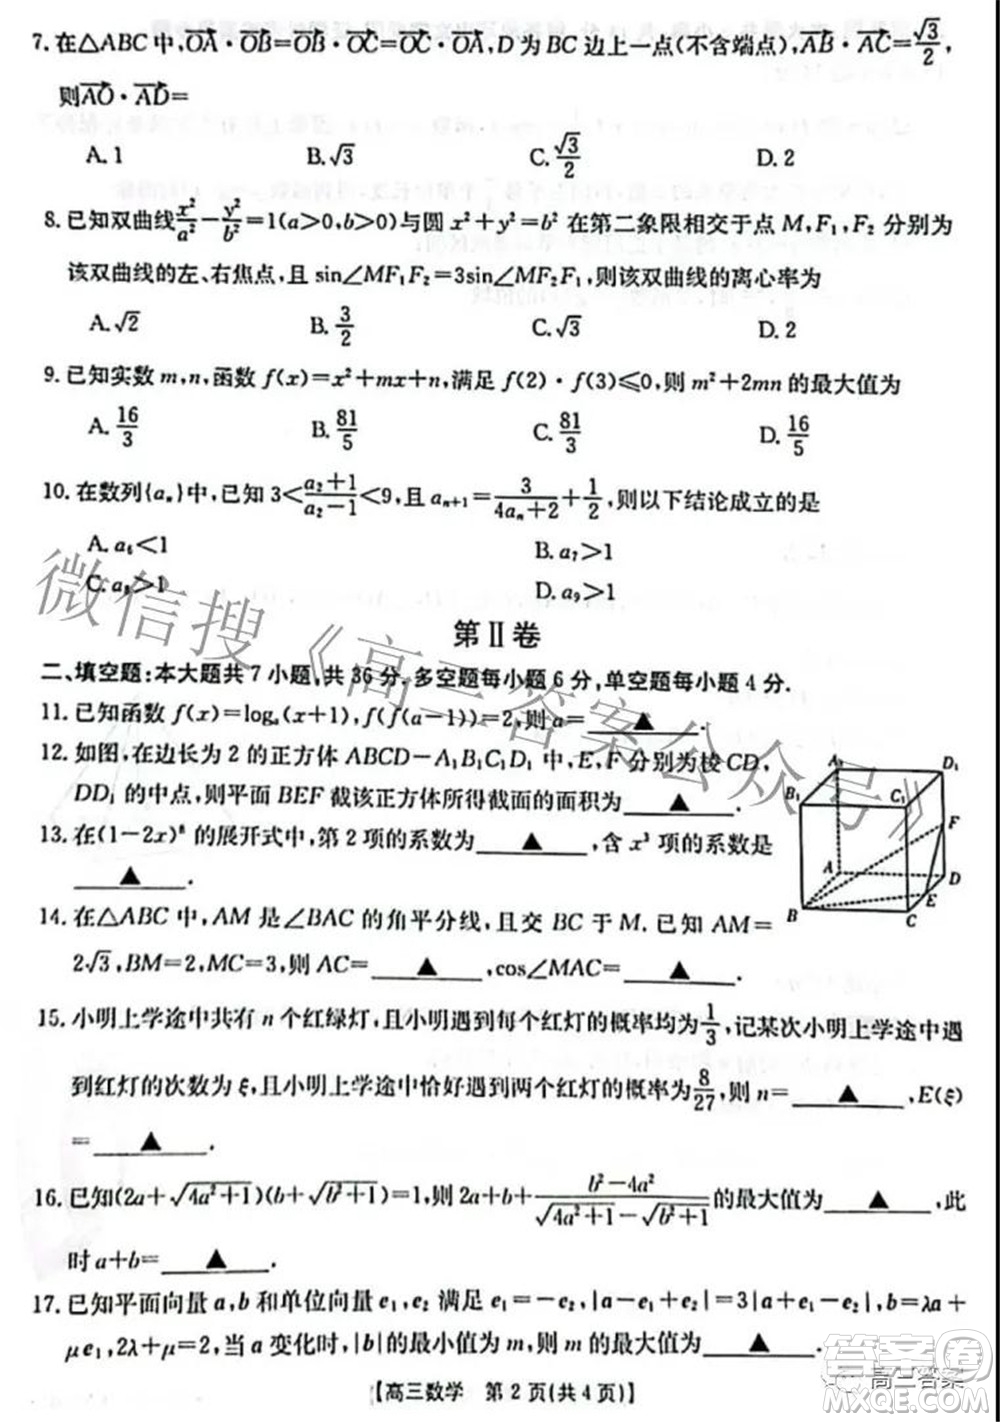 7. 在△ABC中,OA·OB=OB·OC=OC·OA,D为BC边上一点(不含端点),AB·AC=√3/2,
则AO·AD=
A. 1 B. √3 C. √3/2 D. 2
8. 已知双曲线x²/a²-y²/b²=1(a>0,b>0)与圆x²+y²=b²在第二象限相交于点M,F₁,F₂分别为
该双曲线的左、右焦点,且sin∠MF₁F₂=3sin∠MF₂F₁,则该双曲线的离心率为
A. √2 B. 3/2 C. √3 D. 2
9. 已知实数m,n,函数f(x)=x²+mx+n,满足f(2)·f(3)≤0,则m²+2mn的最大值为
A. 16/3 B. 81/5 C. 81/3 D. 16/5
10. 在数列{aₙ}中,已知3<(a₂+1)/(a₂-1)<9,且aₙ₊₁=3/(4aₙ+2)+1/2,则以下结论成立的是
A. a₆<1 B. a₇>1
C. a₈>1 D. a₉>1
第Ⅱ卷
二、填空题:本大题共7小题,共36分.多空题每小题6分,单空题每小题4分.
11. 已知函数f(x)=logₐ(x+1),f(f(a-1))=2,则a=▲.
12. 如图,在边长为2的正方体ABCD-A₁B₁C₁D₁中,E,F分别为棱CD,
DD₁的中点,则平面BEF截该正方体所得截面的面积为▲.
13. 在(1-2x)⁸的展开式中,第2项的系数为▲,含x³项的系数是
▲.
14. 在△ABC中,AM是∠BAC的角平分线,且交BC于M.已知AM=
2√3,BM=2,MC=3,则AC=▲,cos∠MAC=▲.
15. 小明上学途中共有n个红绿灯,且小明遇到每个红灯的概率均为1/3,记某次小明上学途中遇
到红灯的次数为ξ,且小明上学途中恰好遇到两个红灯的概率为8/27,则n=▲,E(ξ)
=▲.
16. 已知(2a+√(4a²+1))(b+√(b²+1))=1,则2a+b+(b²-4a²)/(√(4a²+1)-√(b²+1))的最大值为▲,此
时a+b=▲.
17. 已知平面向量a,b和单位向量e₁,e₂满足e₁=-e₂,|a-e₂|=3|a+e₂|,b=λa+
μe₁,2λ+μ=2,当a变化时,|b|的最小值为m,则m的最大值为▲.
【高三数学 第2页(共4页)】
A₁
D₁
B₁
C₁
F
A
D
E
B
C
微信搜《高三答案公众号》
答案圈
高三答案